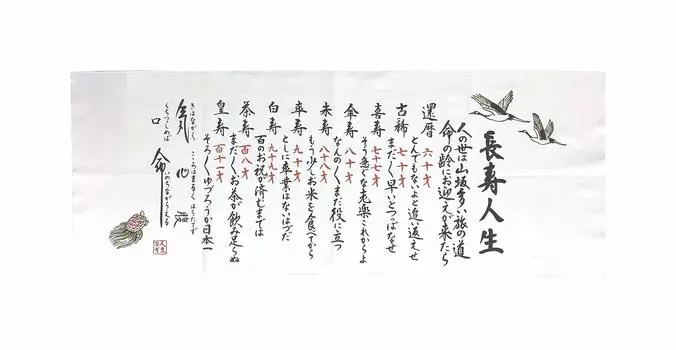 長寿人生
人の世は山坂多い旅の道
命の齢にお迎えが来たら
還暦 六十才 とんでもないよと追い返えせ
古稀 七十才 まだまだ早いとつっぱなせ
喜寿 七十七才 そう急ぐな老楽これからよ
傘寿 八十才 なんのまだまだ役に立つ
米寿 八十八才 もう少しお米を食べてから
卒寿 九十才 としに卒業はないはずだ
白寿 九十九才 百のお祝が済むまでは
茶寿 百八才 まだまだお茶が飲み足らぬ
皇寿 百十一才 そろそろゆづろうか日本一
気はながく
こころはまるく はらたてず
口をつつしめば
命ながらえる